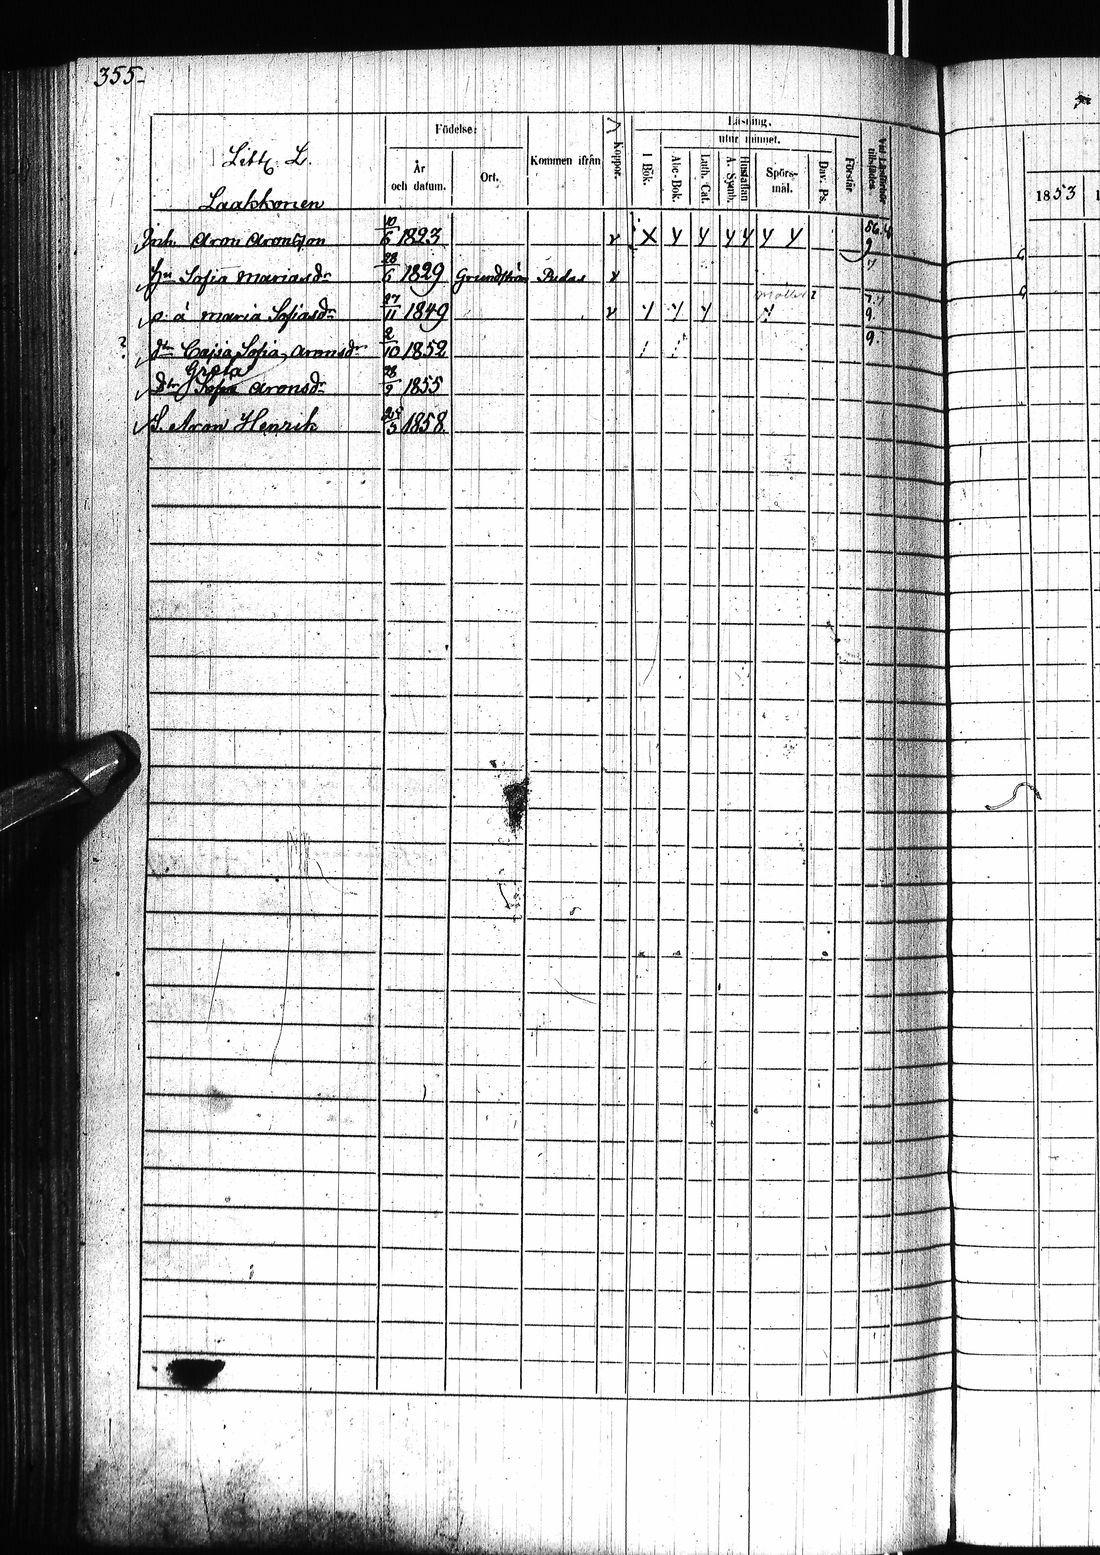 355-
Litt. L.
Laakkonen
Födelse:
År och datum.
Ort.
Kommen ifrån
Koppor.
Läsning,
utur minnet.
I Bok.
Abc-Bok.
Luth. Cat.
Hustaflan A. Symb.
Spörs-mål.
Dav. Ps.
Förstår.
1853
Inh. Aron Aronsson 10/6 1823 v X y y y y y y 56.
Hu Sofia Mariasdr 28/6 1829 Grundsträm Pudas v
o. ä Maria Sofiasdr 27/11 1849 v y y y y 9.
? Dtr Cajsa Sofia Aronsdr 2/10 1852 9.
Greta
Dtr Sofia Aronsdr 28/9 1855
S. Aron Henrik 25/3 1858.